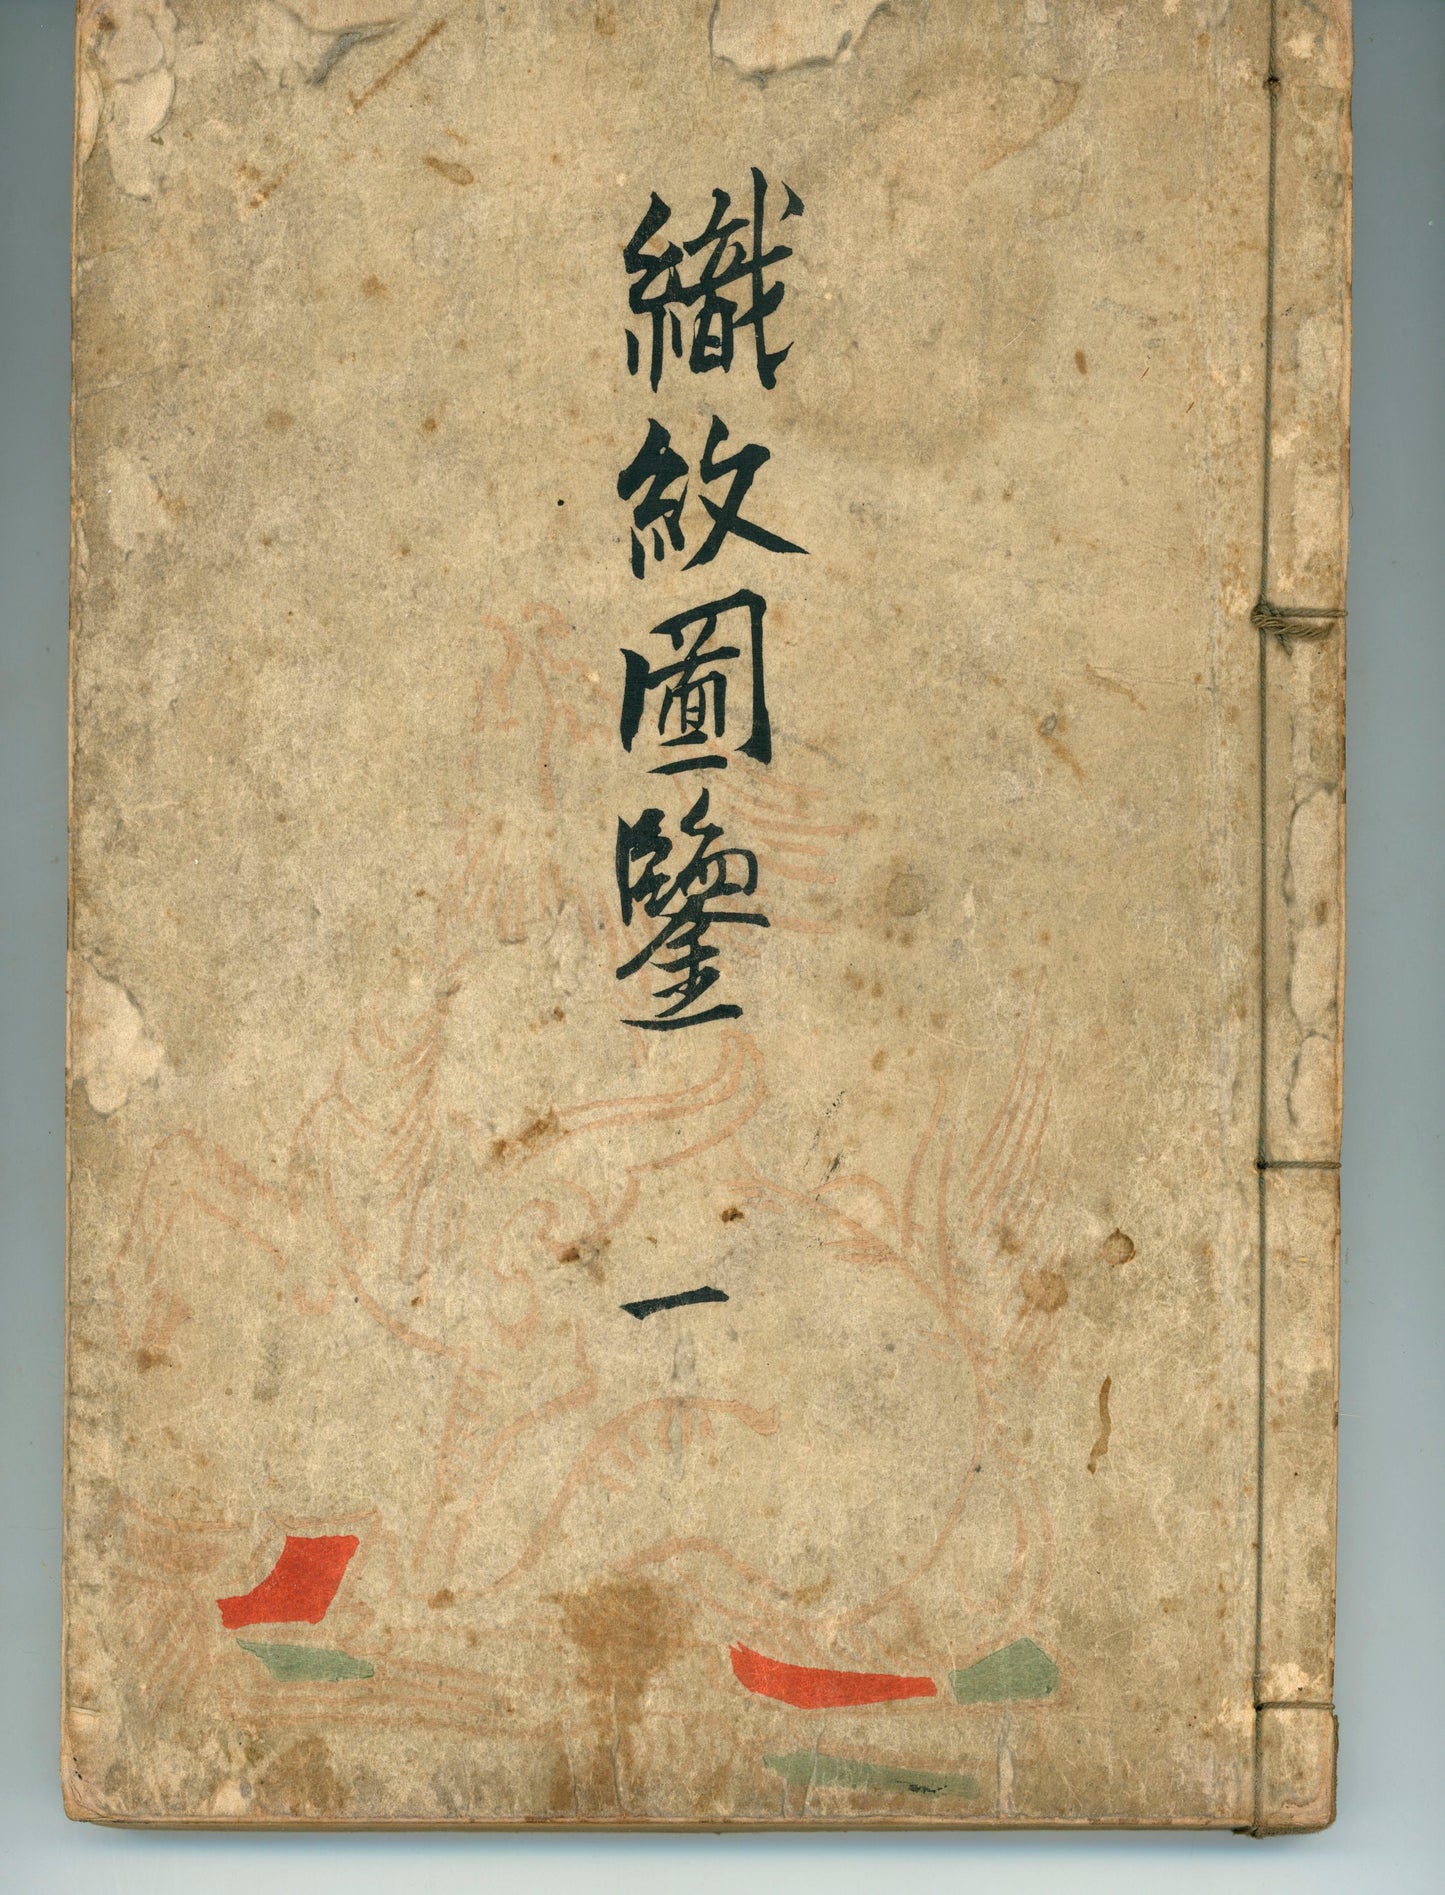 織紋圖鑒
一